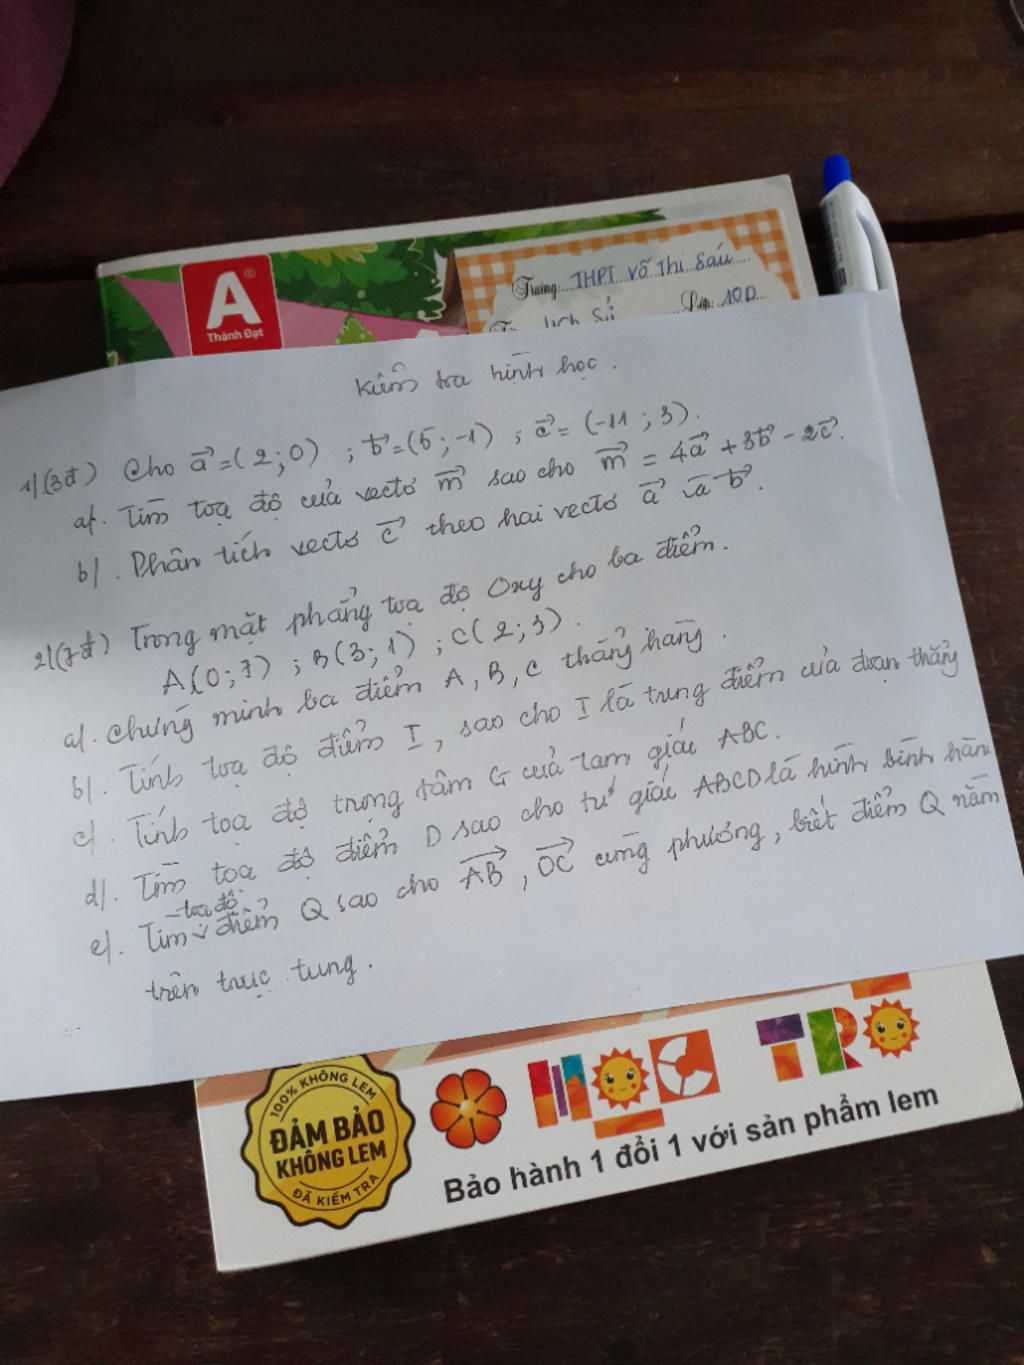 Trường: THPT Võ Thị Sáu
Lịch Sử Lớp: 10D
A®
Thành Đạt
Kiểm tra hình học.
1/(3đ) Cho a⃗ = (2; 0) ; b⃗ = (5; -1) ; c⃗ = (-11 ; 3).
a/. Tìm toạ độ của vectơ m⃗ sao cho m⃗ = 4a⃗ + 3b⃗ - 2c⃗.
b/. Phân tích vectơ c⃗ theo hai vectơ a⃗ và b⃗.
2/(7đ) Trong mặt phẳng toạ độ Oxy cho ba điểm.
A(0; 7) ; B(3; 1) ; C(2; 3).
a/. Chứng minh ba điểm A, B, C thẳng hàng.
b/. Tính toạ độ điểm I, sao cho I là trung điểm của đoạn thẳng
c/. Tính toạ độ trọng tâm G của tam giác ABC.
d/. Tìm toạ độ điểm D sao cho tứ giác ABCD là hình bình hàn
e/. Tìm toạ độ điểm Q sao cho AB⃗, OC⃗ cùng phương, biết điểm Q nằm
trên trục tung.
100% KHÔNG LEM
ĐẢM BẢO
KHÔNG LEM
ĐÃ KIỂM TRA
HỌC TRÒ
Bảo hành 1 đổi 1 với sản phẩm lem